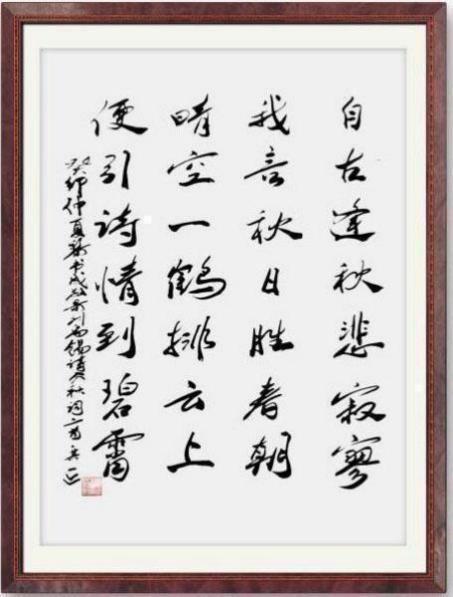 自古逢秋悲寂寥
我言秋日胜春朝
晴空一鹤排云上
便引詩情到碧霄
癸卯仲夏 书 刘禹锡 秋词一首